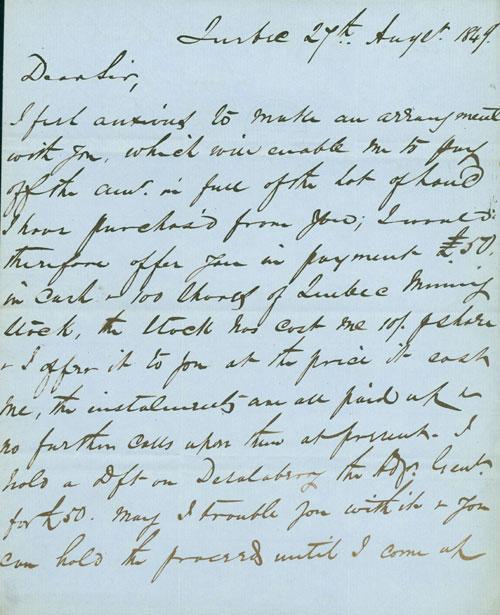 Quebec 27th. Augt. 1849.
Dear Sir,
I feel anxious to make an arrangment
with you, which will enable me to pay
off the amt. in full of the lot of land
I have purchas'd from you; I would
therefore offer you in payment £50.
in Cash & 100 Shares of Quebec Mining
Stock, the Stock has cost me 10/. P share
& I offer it to you at the price it cost
me, the instalments are all paid up &
no further calls upon them at present. I
hold a Dft on Desalabery the Adjt. Genl.
for £50. may I trouble you with it & you
can hold the proceeds until I come up